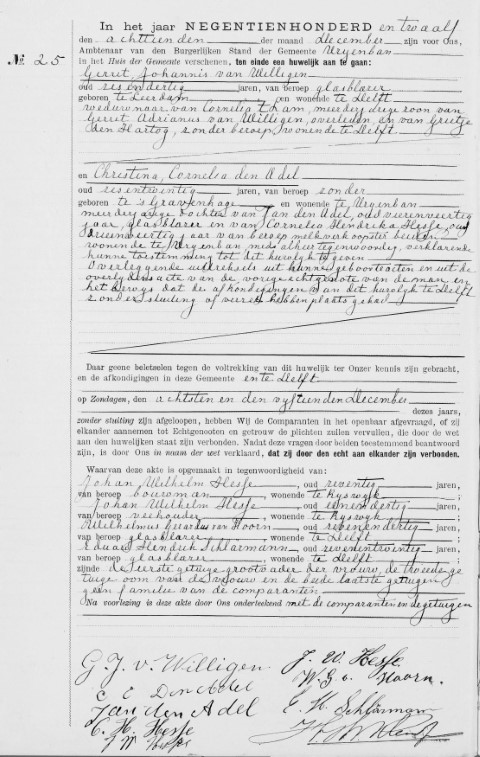 In het jaar NEGENTIENHONDERD en twaalf
den achttienden der maand December zijn voor Ons,
Ambtenaar van den Burgerlijken Stand der Gemeente Vrijenban
No. 25
in het Huis der Gemeente verschenen, ten einde een huwelijk aan te gaan:
Gerret Johannis van Willigen
oud sesendertig jaren, van beroep glasblazer
geboren te Leerdam en wonende te Delft
weduwnaar van Cornelia Ham, meerderjarige zoon van
Gerret Adrianus van Willigen, overleden, en van Grietje
den Hartog, zonder beroep, wonende te Delft
en Christina, Cornelia den Adel
oud sesentwintig jaren, van beroep zonder
geboren te 's Gravenhage en wonende te Vrijenban
meerderjarige dochter van Jan den Adel, oud vierenveertig
jaar, glasblazer en van Cornelia Hendrika Hesse, oud
jaar van beroep melkverkoopster beiden
wonende te Vrijenban mede alhier tegenwoordig, verklarende
hunne toestemming tot dit huwelijk te geven
Overleggende uittreksels uit hunne geboorteacten en uit de
overlydensacte van de vorige echtgenote van de man, en
het bewys dat de afkondigingen van dit huwelyk te Delft
zonder stuiting of verzet hebben plaats gehad
Daar geene beletselen tegen de voltrekking van dit huwelijk ter Onzer kennis zijn gebracht,
en de afkondigingen in deze Gemeente en te Delft
op Zondagen, den achtsten en den vyftienden December
dezes jaars,
zonder stuiting zijn afgeloopen, hebben Wij de Comparanten in het openbaar afgevraagd, of zij
elkander aannemen tot Echtgenooten en getrouw de plichten zullen vervullen, die door de wet
aan den huwelijken staat zijn verbonden. Nadat deze vragen door beiden toestemmend beantwoord
zijn, is door Ons in naam der wet verklaard, dat zij door den echt aan elkander zijn verbonden.
Waarvan deze akte is opgemaakt in tegenwoordigheid van:
Johan Wilhelm Hesse, oud seventig jaren,
van beroep bouwman, wonende te Ryswyk;
Johan Wilhelm Hesse, oud eenendertig jaren,
van beroep veehouder, wonende te Ryswyk;
Wilhelmus Gerardus van Hoorn, oud sevenendertig jaren,
van beroep glasblazer, wonende te Delft;
Eduard Hendrik Schlarmann, oud sevenentwintig jaren,
van beroep glasblazer, wonende te Delft;
zijnde de eerste getuige grootvader der vrouw, de tweede ge-
tuige oom van de vrouw en de beide laatste getuigen
geen familie van de comparanten
Na voorlezing is deze akte door Ons onderteekend met de comparanten en de getuigen
G. J. v. Willigen
J. W. Hesse
C C Den Adel
W. G. v. Hoorn.
Jan den Adel
E. H. Schlarman
C. H. Hesse
J W Hesse